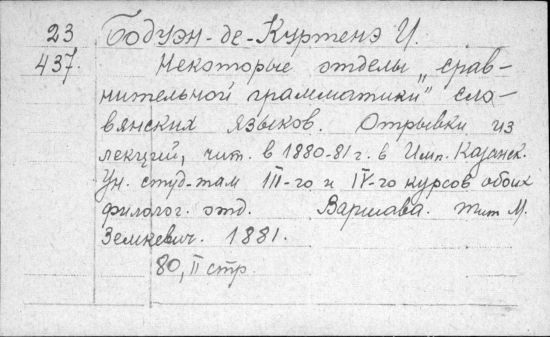 23 Бодуэн-де-Куртенэ И.
437. Некоторые отделы „срав-
нительной грамматики" сла-
вянских языков. Отрывки из
лекций, чит. в 1880-81 г. в Имп. Казанск.
Ун. студ-там III-го и IV-го курсов обоих
филолог. отд. Варшава. тип М.
Земкевич. 1881.
80, II стр.